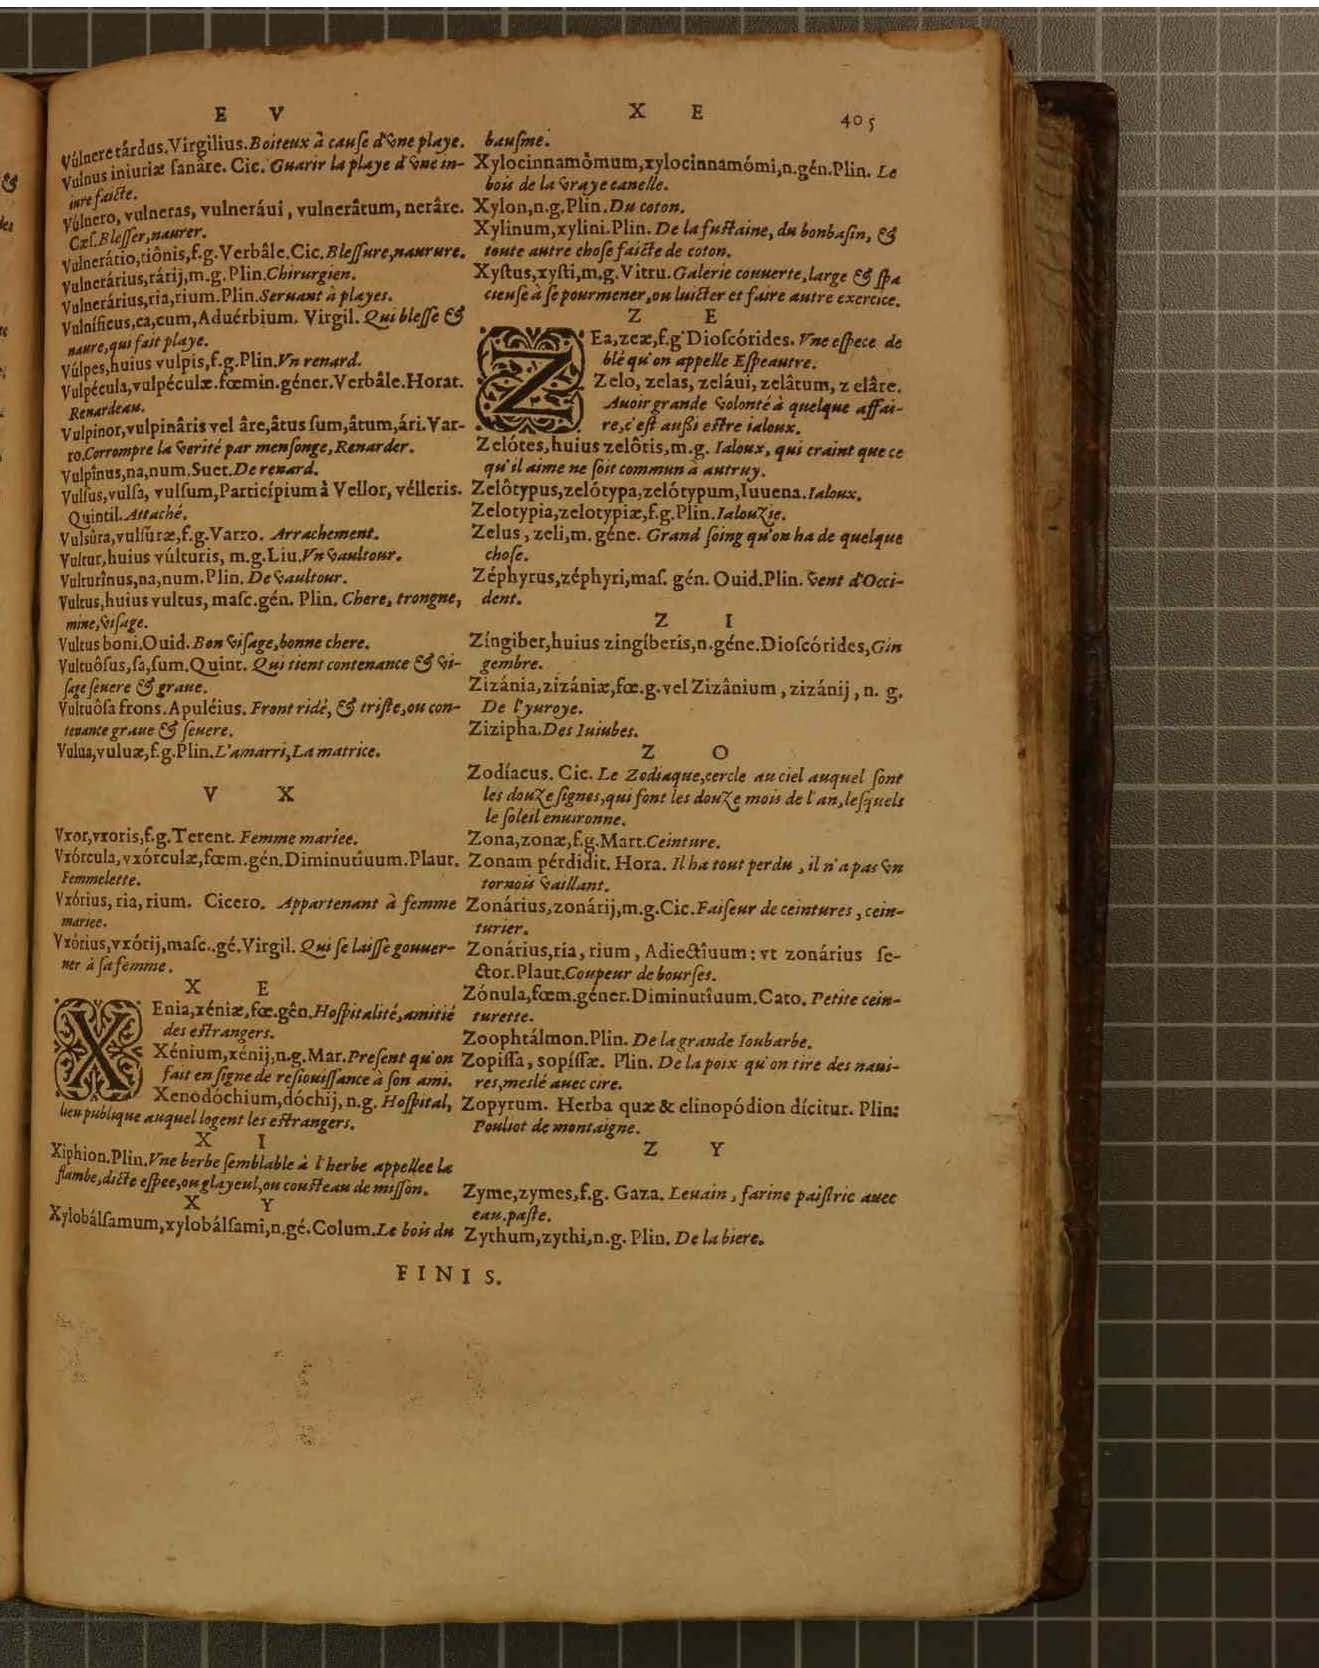 E V
X E
405
Vúlnere tárdus. Virgilius. Boiteux à cauſe d'vne playe.
Vulnus iniuriæ ſanâre. Cic. Guarir la playe d'vne in-
iure faicte.
Vúlnero, vulneras, vulneráui, vulnerâtum, nerâre.
Cæſ. Bleſſer, naurer.
Vulnerátio, tiônis, f.g. Verbâle. Cic. Bleſſure, naurure.
Vulnerárius, rárij, m.g. Plin. Chirurgien.
Vulnerárius, ria, rium. Plin. Seruant à playes.
Vulníficus, ca, cum, Aduérbium. Virgil. Qui bleſſe &
naure, qui fait playe.
Vúlpes, huius vulpis, f.g. Plin. Vn renard.
Vulpécula, vulpéculæ. fœmin. géner. Verbâle. Horat.
Renardeau.
Vulpinor, vulpinâris vel âre, âtus ſum, âtum, ári. Var-
ro. Corrompre la verité par menſonge, Renarder.
Vulpînus, na, num. Suet. De renard.
Vulſus, vulſa, vulſum, Particípium à Vellor, vélleris.
Quintil. Attaché.
Vulsûra, vulſûræ, f.g. Varro. Arrachement.
Vultur, huius vúlturis, m.g. Liu. Vn vaultour.
Vulturînus, na, num. Plin. De vaultour.
Vultus, huius vultus, maſc. gén. Plin. Chere, trongne,
mine, viſage.
Vultus boni. Ouid. Bon viſage, bonne chere.
Vultuôſus, ſa, ſum. Quint. Qui tient contenance & vi-
ſage ſeuere & graue.
Vultuôſa frons. Apuléius. Front ridé, & triſte, ou con-
tenante graue & ſeuere.
Vulua, vuluæ, f.g. Plin. L'amarri, La matrice.
V X
Vxor, vxoris, f.g. Terent. Femme mariee.
Vxórcula, vxórculæ, fœm. gén. Diminutîuum. Plaut.
Femmelette.
Vxórius, ria, rium. Cicero. Appartenant à femme
mariee.
Vxórius, vxórij, maſc..gé. Virgil. Qui ſe laiſſe gouuer-
ner à ſa femme.
X E
XEnia, xéniæ, fœ. gên. Hoſpitalité, amitié
des eſtrangers.
Xénium, xénij, n.g. Mar. Preſent qu'on
fait en ſigne de reſiouiſſance à ſon ami.
Xenodóchium, dóchij, n.g. Hoſpital,
lieu publique auquel logent les eſtrangers.
X I
Xiphion. Plin. Vne herbe ſemblable à l'herbe appellee la
flambe, dicte eſpee, ou glayeul, ou couſteau de miſſon.
X Y
Xylobálſamum, xylobálſami, n.gé. Colum. Le bois du
bauſme.
Xylocinnamômum, xylocinnamómi, n.gén. Plin. Le
bois de la vraye canelle.
Xylon, n.g. Plin. Du coton.
Xylinum, xylini. Plin. De la fuſtaine, du bonbaſin, &
toute autre choſe faicte de coton.
Xyſtus, xyſti, m.g. Vitru. Galerie couuerte, large & ſpa
cieuſe à ſe pourmener, ou luicter et faire autre exercice.
Z E
ZEa, zeæ, f.g Dioſcórides. Vne eſpece de
blé qu'on appelle Eſpeautre.
Zelo, zelas, zeláui, zelâtum, z elâre.
Auoir grande volonté à quelque affai-
re, c'eſt auſsi eſtre ialoux.
Zelótes, huius zelôtis, m.g. Ialoux, qui craint que ce
qu'il aime ne ſoit commun a autruy.
Zelôtypus, zelótypa, zelótypum, Iuuena. Ialoux.
Zelotypia, zelotypiæ, f.g. Plin. Ialouzie.
Zelus, zeli, m. géne. Grand ſoing qu'on ha de quelque
choſe.
Zéphyrus, zéphyri, maſ. gén. Ouid. Plin. Vent d'Occi-
dent.
Z I
Zíngiber, huius zingíberis, n. géne. Dioſcórides, Gin
gembre.
Zizánia, zizániæ, fœ.g. vel Zizânium, zizánij, n. g.
De l'yuroye.
Zizipha. Des Iuiubes.
Z O
Zodíacus. Cic. Le Zodiaque, cercle au ciel auquel ſont
les douze ſignes, qui font les douze mois de l'an, leſquels
le ſoleil enuironne.
Zona, zonæ, f.g. Mart. Ceinture.
Zonam pérdidit. Hora. Il ha tout perdu, il n'a pas vn
tornois vaillant.
Zonárius, zonárij, m.g. Cic. Faiſeur de ceintures, cein-
turier.
Zonárius, ria, rium, Adiectîuum: vt zonárius ſe-
ctor. Plaut. Coupeur de bourſes.
Zónula, fœm. géner. Diminutîuum. Cato. Petite cein-
turette.
Zoophtálmon. Plin. De la grande Ioubarbe.
Zopiſſa, sopíſſæ. Plin. De la poix qu'on tire des naui-
res, meslé auec cire.
Zopyrum. Herba quæ & clinopódion dícitur. Plin:
Pouliot de montaigne.
Z Y
Zyme, zymes, f.g. Gaza. Leuain, farine paiſtrie auec
eau. paſte.
Zythum, zythi, n.g. Plin. De la biere.
FINIS.